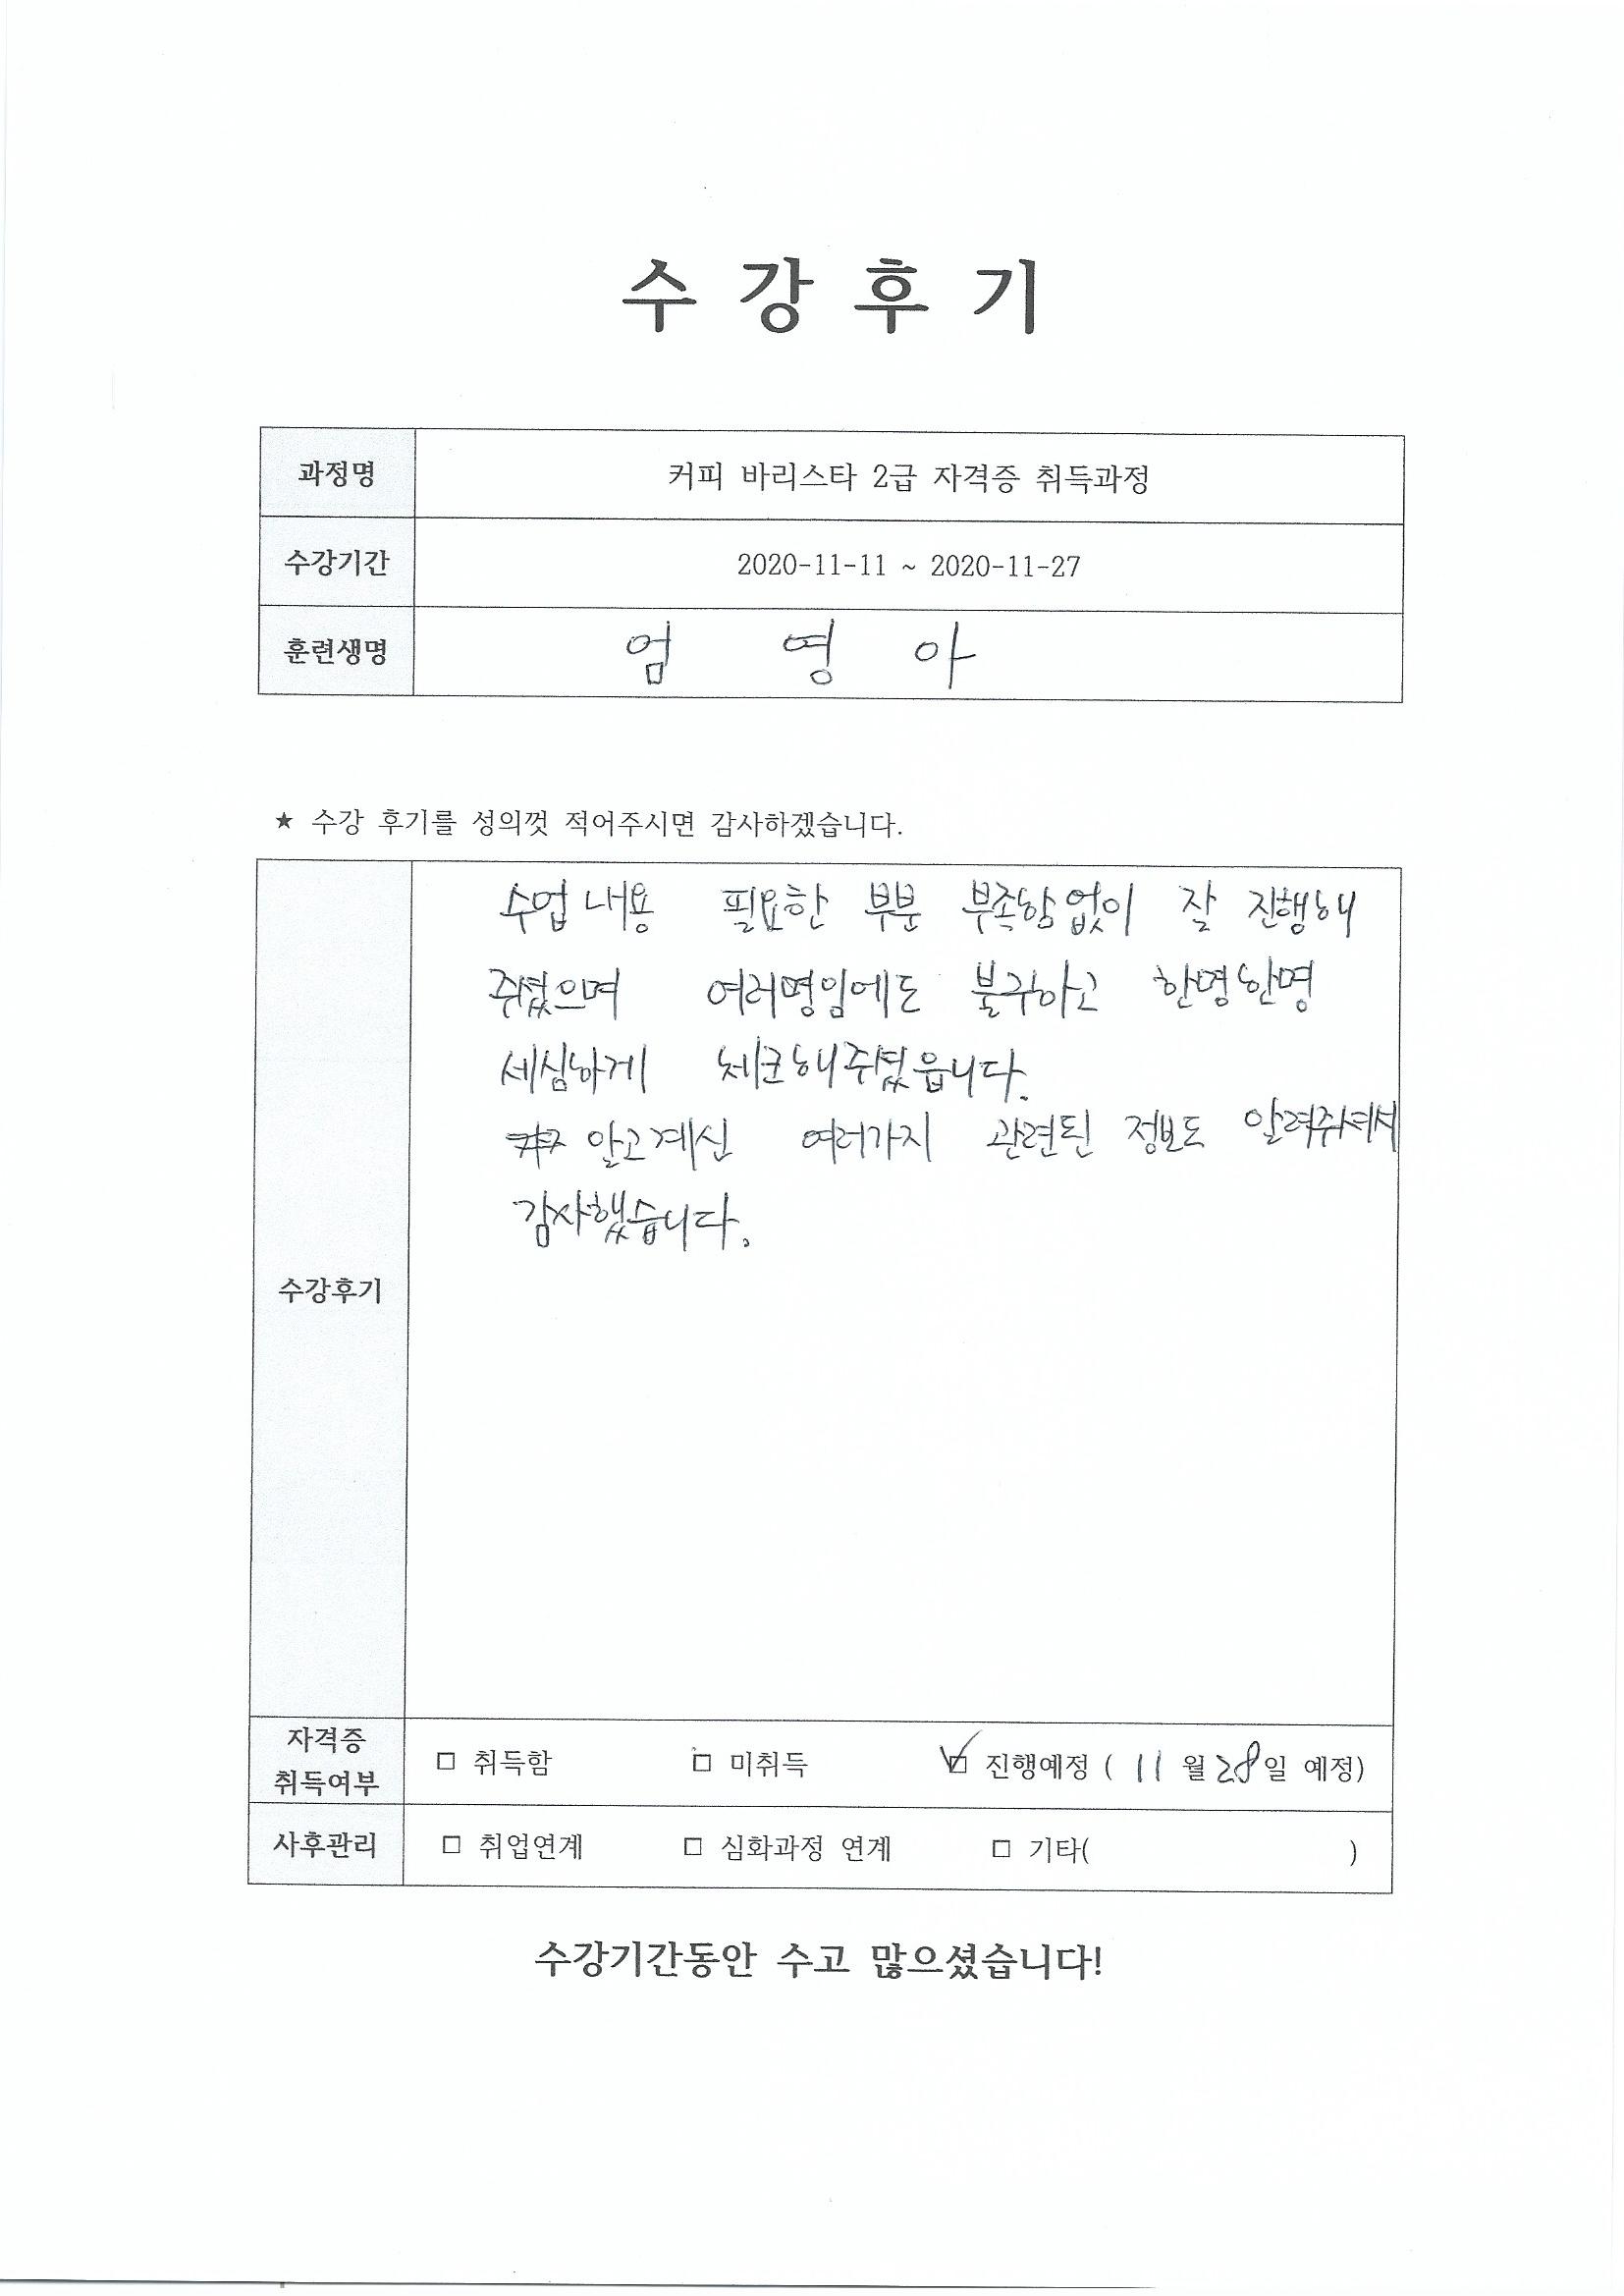 수 강 후 기
과정명 커피 바리스타 2급 자격증 취득과정
수강기간 2020-11-11 ~ 2020-11-27
훈련생명 엄 영 아
★ 수강 후기를 성의껏 적어주시면 감사하겠습니다.
수업 내용 필요한 부분 부족함없이 잘 진행해
주셨으며 여러명임에도 불구하고 한명한명
세심하게 체크해주셨읍니다.
알고계신 여러가지 관련된 정보도 알려주셔서
감사했습니다.
수강후기
자격증
취득여부
□ 취득함 □ 미취득 ☑ 진행예정 ( 11 월 28일 예정)
사후관리 □ 취업연계 □ 심화과정 연계 □ 기타( )
수강기간동안 수고 많으셨습니다!